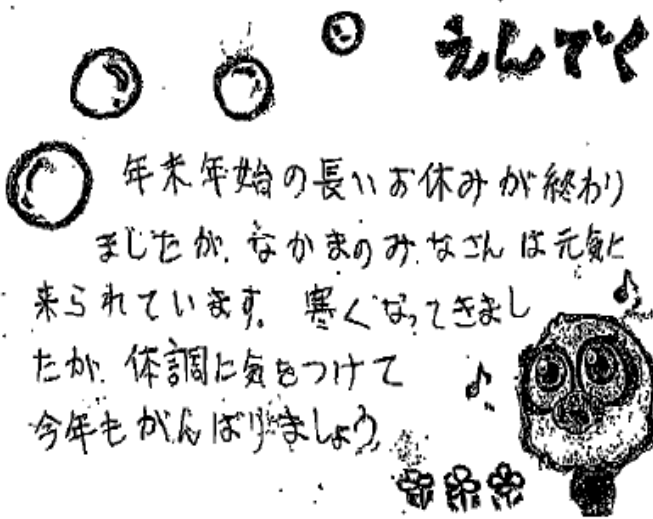 えんでく
年末年始の長いお休みが終わり
ましたが、なかまのみなさんは元気に
来られています。寒くなってきまし
たが、体調に気をつけて
今年もがんばりましょう。